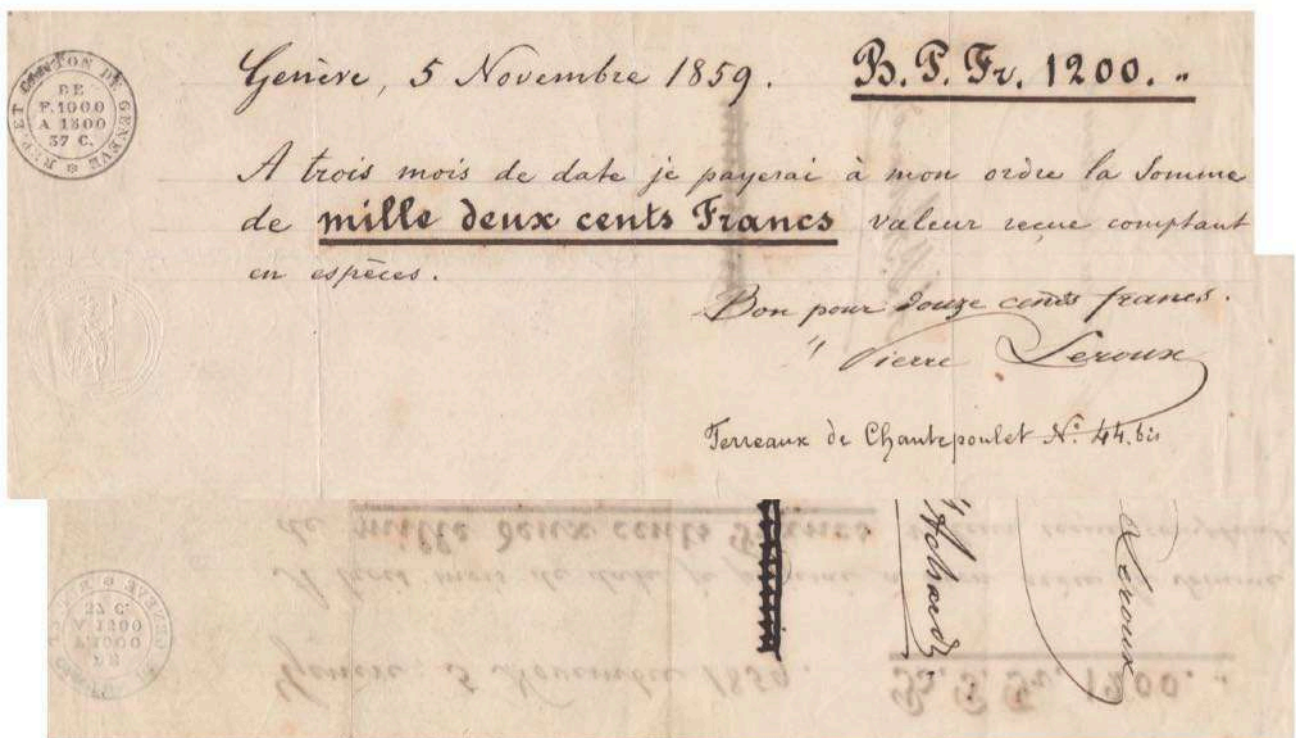 REP. ET CANTON DE GENEVE
DE
F. 1000
A 1500
37 C.
Genève, 5 Novembre 1859. B. P. Fr. 1200. "
A trois mois de date je payerai à mon ordre la Somme
de mille deux cents Francs valeur reçue comptant
en espèces.
Bon pour douze cents francs.
Pierre Leroux
Terreaux de Chantepoulet N.° 44. bis
Achard
Leroux